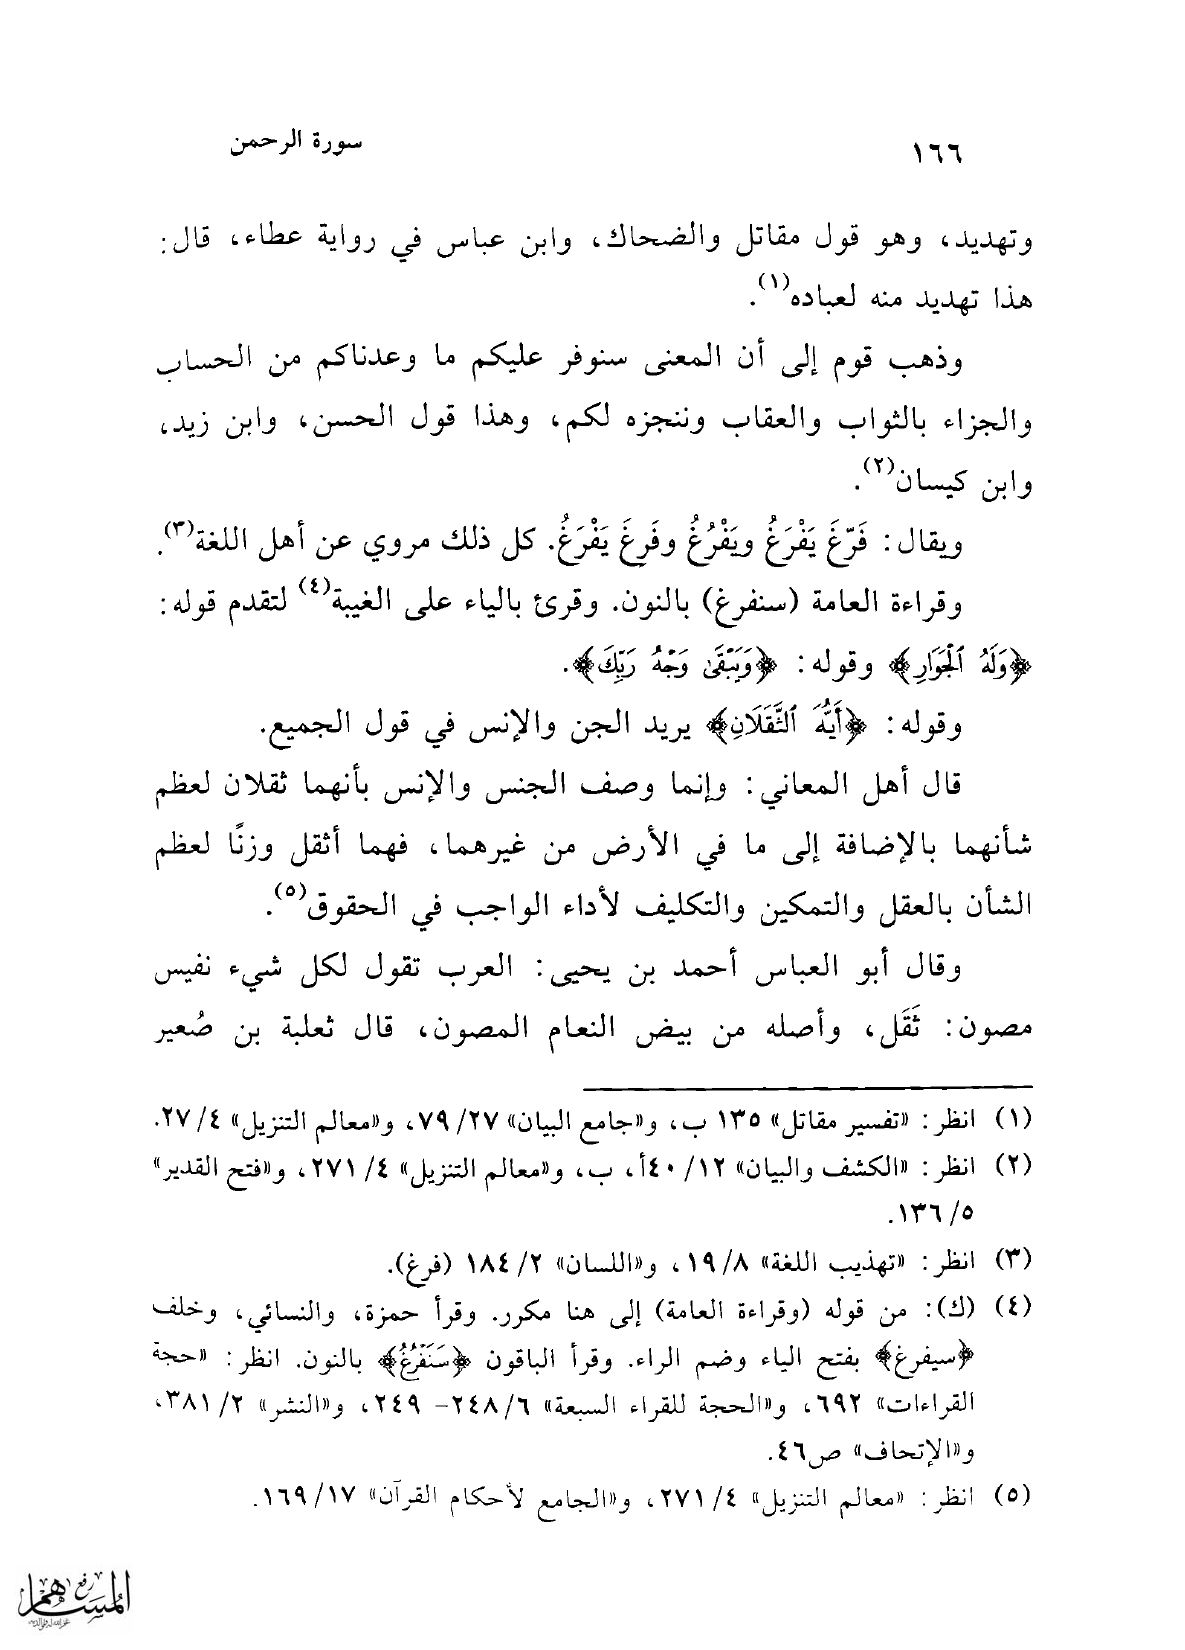 ١٦٦ سورة الرحمن
وتهديد، وهو قول مقاتل والضحاك، وابن عباس في رواية عطاء، قال:
هذا تهديد منه لعباده(١).
وذهب قوم إلى أن المعنى سنوفر عليكم ما وعدناكم من الحساب
والجزاء بالثواب والعقاب وننجزه لكم، وهذا قول الحسن، وابن زيد،
وابن كيسان(٢).
ويقال: فَرّغَ يَفْرَغُ ويَفْرُغُ وفَرِغَ يَفْرَغُ. كل ذلك مروي عن أهل اللغة(٣).
وقراءة العامة (سنفرغ) بالنون. وقرئ بالياء على الغيبة(٤) لتقدم قوله:
﴿وَلَهُ ٱلْجَوَارِ﴾ وقوله: ﴿وَيَبْقَىٰ وَجْهُ رَبِّكَ﴾.
وقوله: ﴿أَيُّهَ ٱلثَّقَلَانِ﴾ يريد الجن والإنس في قول الجميع.
قال أهل المعاني: وإنما وصف الجنس والإنس بأنهما ثقلان لعظم
شأنهما بالإضافة إلى ما في الأرض من غيرهما، فهما أثقل وزنًا لعظم
الشأن بالعقل والتمكين والتكليف لأداء الواجب في الحقوق(٥).
وقال أبو العباس أحمد بن يحيى: العرب تقول لكل شيء نفيس
مصون: ثَقَل، وأصله من بيض النعام المصون، قال ثعلبة بن صُعير
(١) انظر: «تفسير مقاتل» ١٣٥ ب، و«جامع البيان» ٢٧/ ٧٩، و«معالم التنزيل» ٤/ ٢٧.
(٢) انظر: «الكشف والبيان» ١٢/ ٤٠أ، ب، و«معالم التنزيل» ٤/ ٢٧١، و«فتح القدير»
٥/ ١٣٦.
(٣) انظر: «تهذيب اللغة» ٨/ ١٩، و«اللسان» ٢/ ١٨٤ (فرغ).
(٤) (ك): من قوله (وقراءة العامة) إلى هنا مكرر. وقرأ حمزة، والنسائي، وخلف
﴿سيفرغ﴾ بفتح الياء وضم الراء. وقرأ الباقون ﴿سَنَفْرُغُ﴾ بالنون. انظر: «حجة
القراءات» ٦٩٢، و«الحجة للقراء السبعة» ٦/ ٢٤٨- ٢٤٩، و«النشر» ٢/ ٣٨١،
و«الإتحاف» ص٤٦.
(٥) انظر: «معالم التنزيل» ٤/ ٢٧١، و«الجامع لأحكام القرآن» ١٧/ ١٦٩.
رفع
المساهم